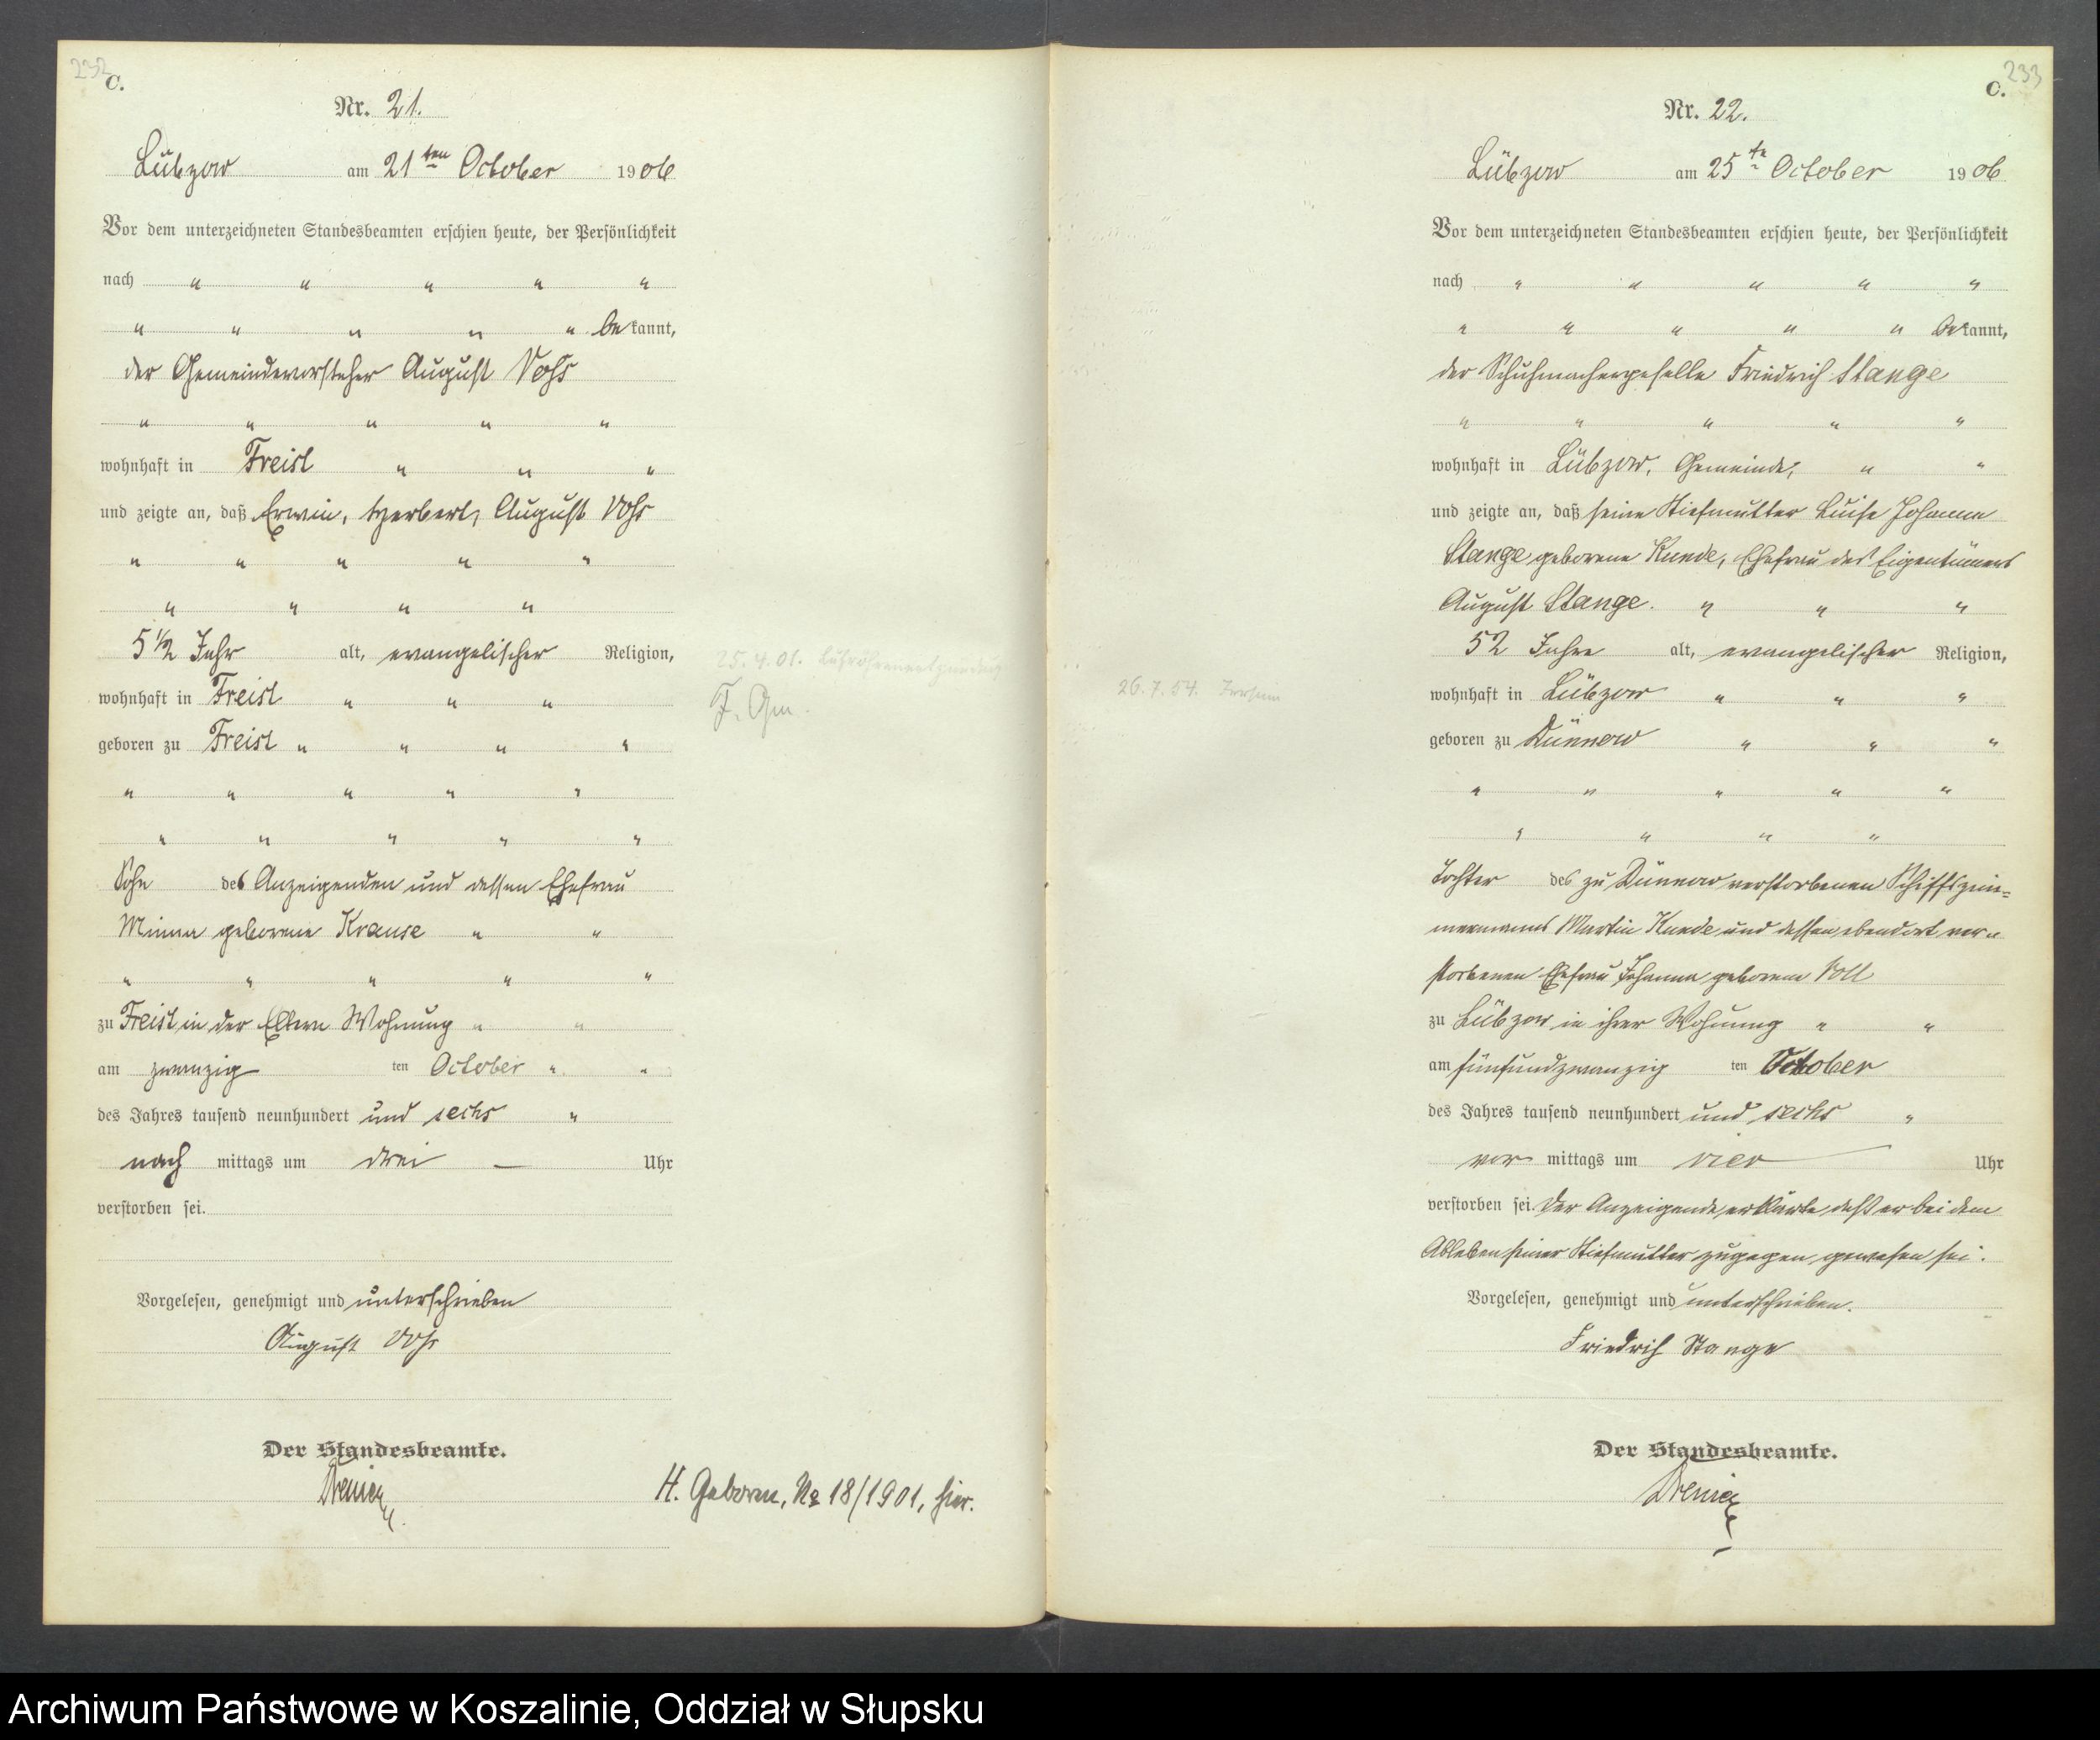 232
C.
Nr. 21.
Lübzow am 21ten October 1906
Vor dem unterzeichneten Standesbeamten erschien heute, der Persönlichkeit
nach " " " " "
" " " " " bekannt,
der Gemeindevorsteher August Voss
" " " " "
wohnhaft in Freist " " "
und zeigte an, daß Erwin, Herbert, August Voss
" " " " "
" " " "
5 1/2 Jahr alt, evangelischer Religion,
wohnhaft in Freist " " "
geboren zu Freist " " " "
" " " " "
" " " " "
Sohn des Anzeigenden und dessen Ehefrau
Minna geborene Krause " "
" " " " "
zu Freist, in der Eltern Wohnung " "
am zwanzig ten October " "
des Jahres tausend neunhundert und sechs "
nach mittags um drei — Uhr
verstorben sei.
Vorgelesen, genehmigt und unterschrieben
August Voss
Der Standesbeamte.
25.4.01.
F. Gm.
H. Geboren, No 18/1901, hier.
233
C.
Nr. 22.
Lübzow am 25te October 1906
Vor dem unterzeichneten Standesbeamten erschien heute, der Persönlichkeit
nach " " " " "
" " " " " bekannt,
der Schuhmachergeselle Friedrich Stange
" " " " "
wohnhaft in Lübzow, Gemeinde, " "
und zeigte an, daß seine Stiefmutter Luise Johanna
Stange geborene Kunde, Ehefrau des Eigentümers
August Stange. " " "
52 Jahre alt, evangelischer Religion,
wohnhaft in Lübzow " " "
geboren zu Dünnow " " "
" " " " "
" " " "
Tochter des zu Dünnow verstorbenen Schiffszim=
mermanns Martin Kunde und dessen ebendort ver=
storbenen Ehefrau Johanna geborene Voll
zu Lübzow in ihrer Wohnung " "
am fünfundzwanzig ten October
des Jahres tausend neunhundert und sechs "
vor mittags um vier Uhr
verstorben sei. Der Anzeigende erklärte, daß er bei dem
Ableben seiner Stiefmutter zugegen gewesen sei.
Vorgelesen, genehmigt und unterschrieben.
Friedrich Stange
Der Standesbeamte.
26.7.54.
Archiwum Państwowe w Koszalinie, Oddział w Słupsku